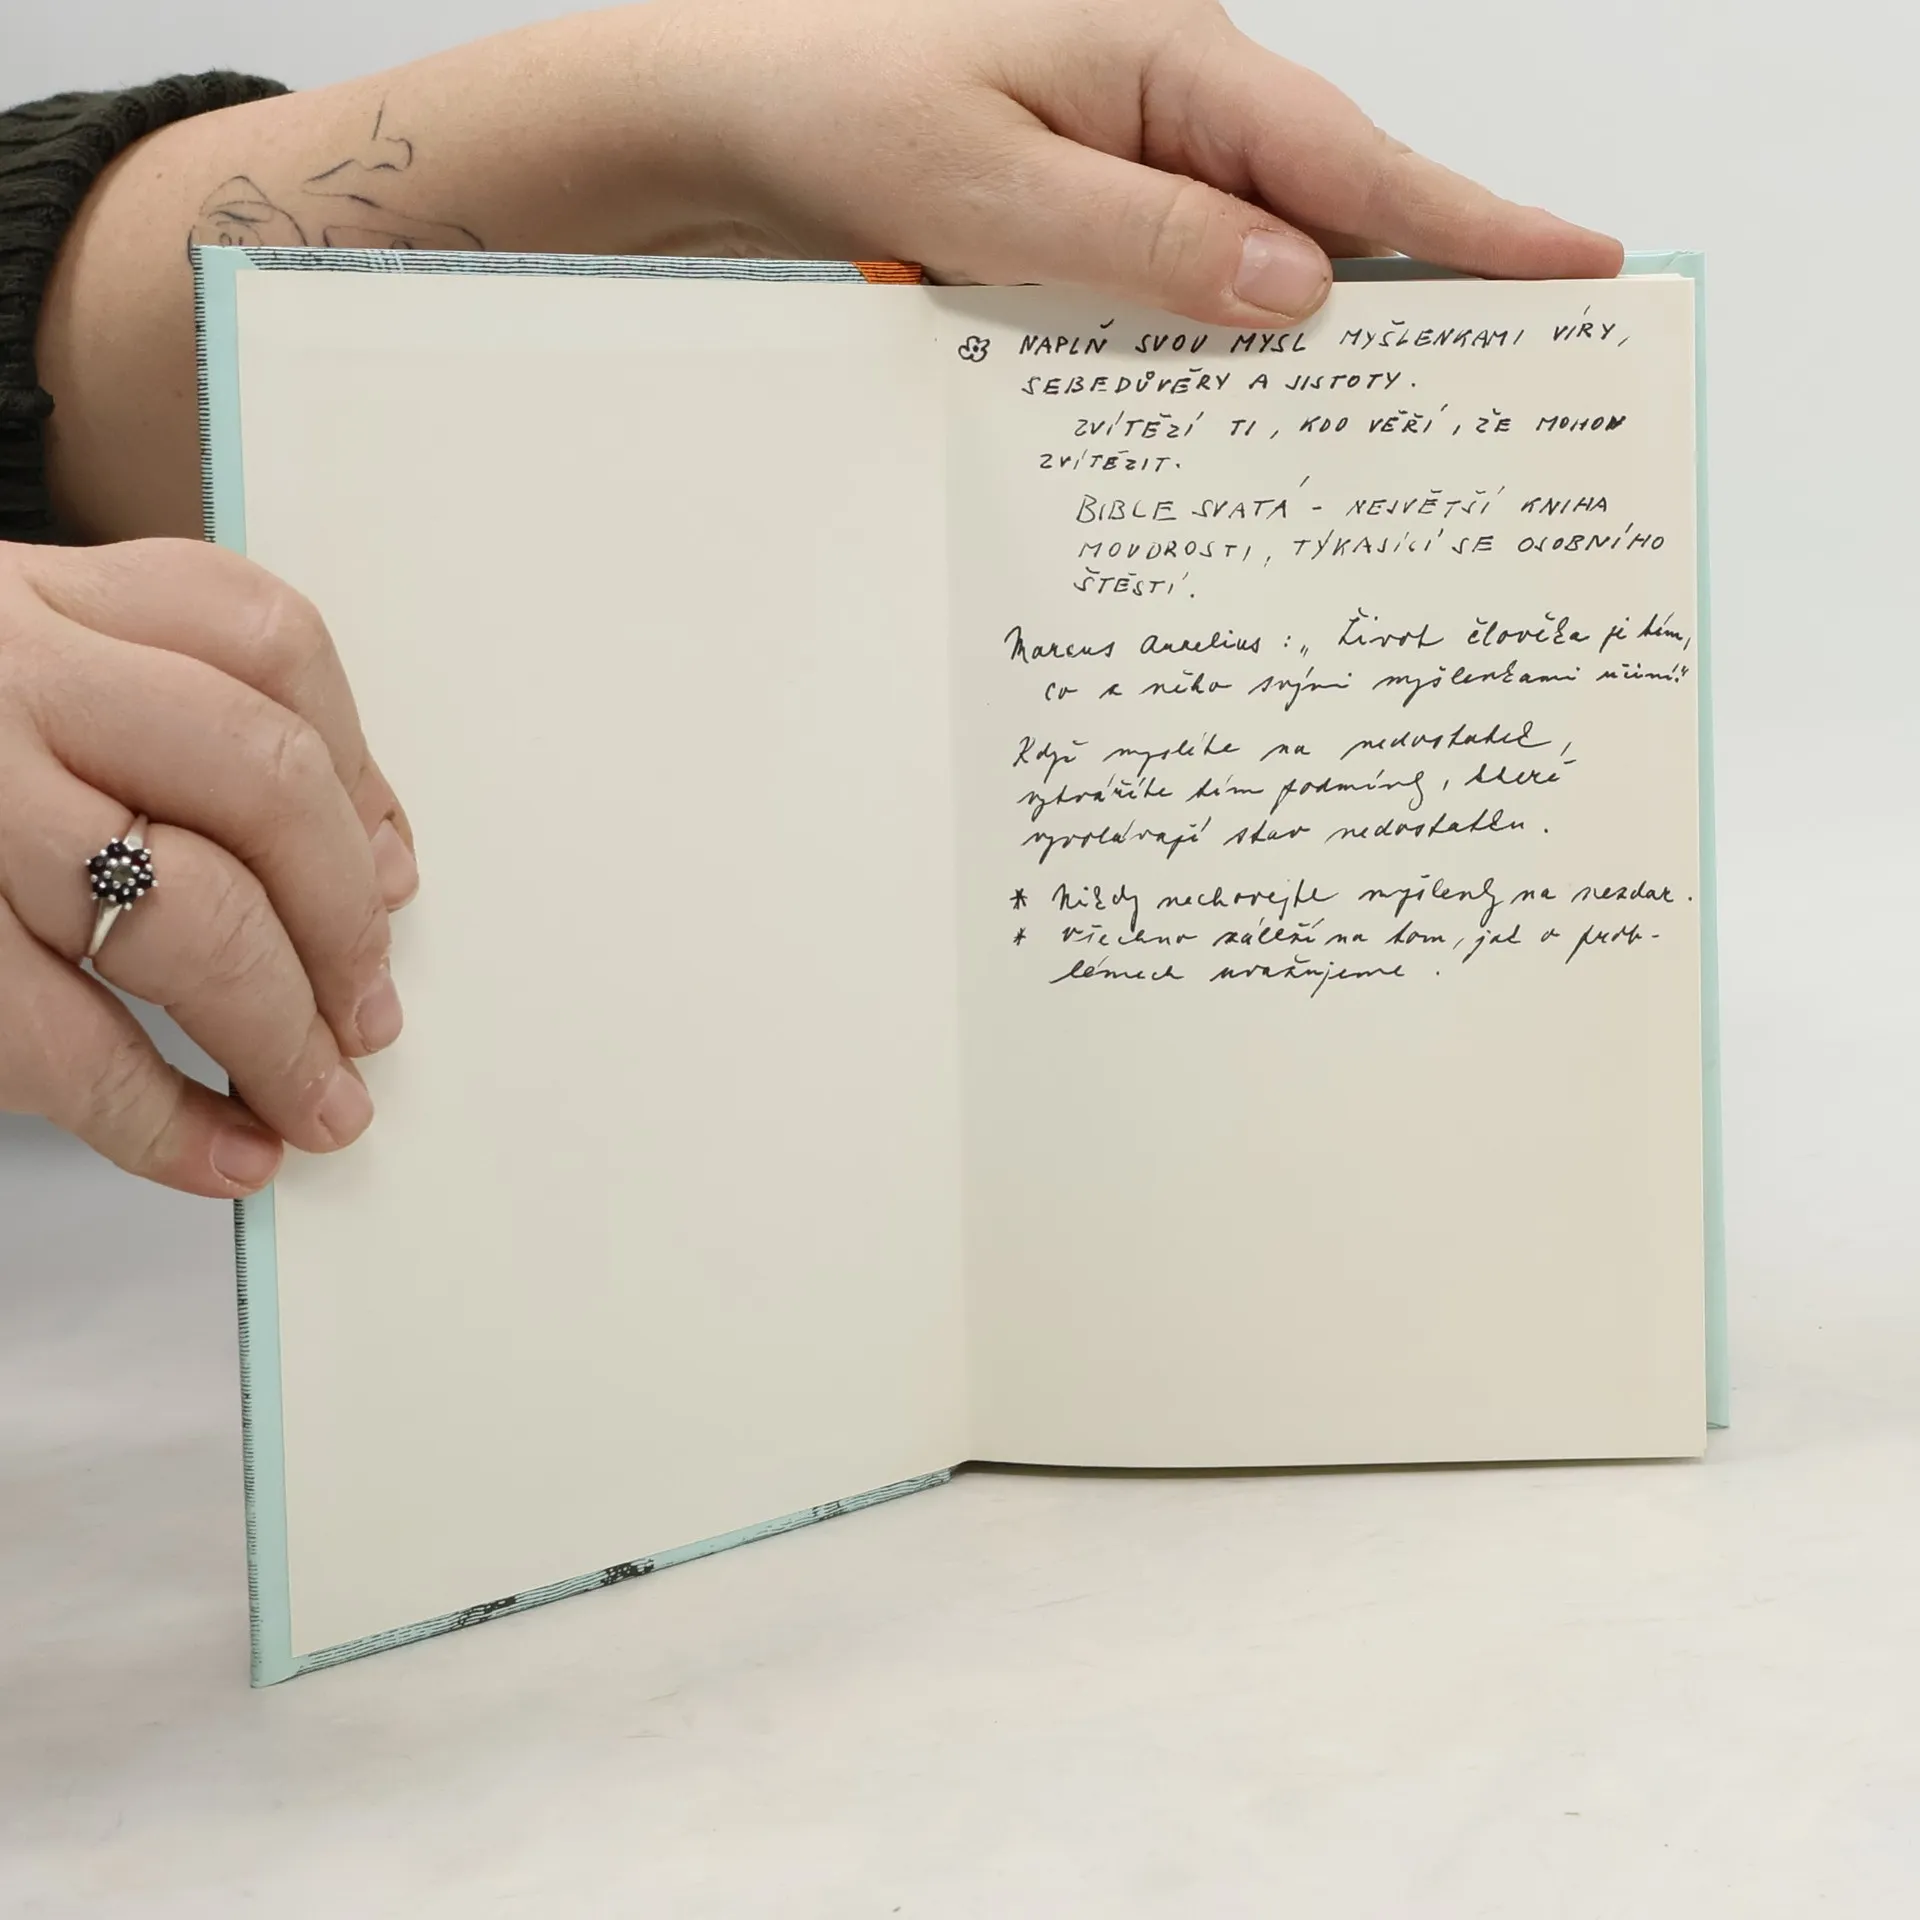 NAPLŇ SVOU MYSL MYŠLENKAMI VÍRY,
SEBEDŮVĚRY A JISTOTY.
ZVÍTĚZÍ TI, KDO VĚŘÍ, ŽE MOHOU
ZVÍTĚZIT.
BIBLE SVATÁ - NEJVĚTŠÍ KNIHA
MOUDROSTI, TÝKAJÍCÍ SE OSOBNÍHO
ŠTĚSTÍ.
Marcus Aurelius: „Život člověka je tím,
co z něho svými myšlenkami učiní."
Když myslíte na nedostatek,
vytváříte tím podmínky, které
vyvolávají stav nedostatku.
* Nikdy nechovejte myšlenky na nezdar.
* Všechno záleží na tom, jak o prob-
lémech uvažujeme.